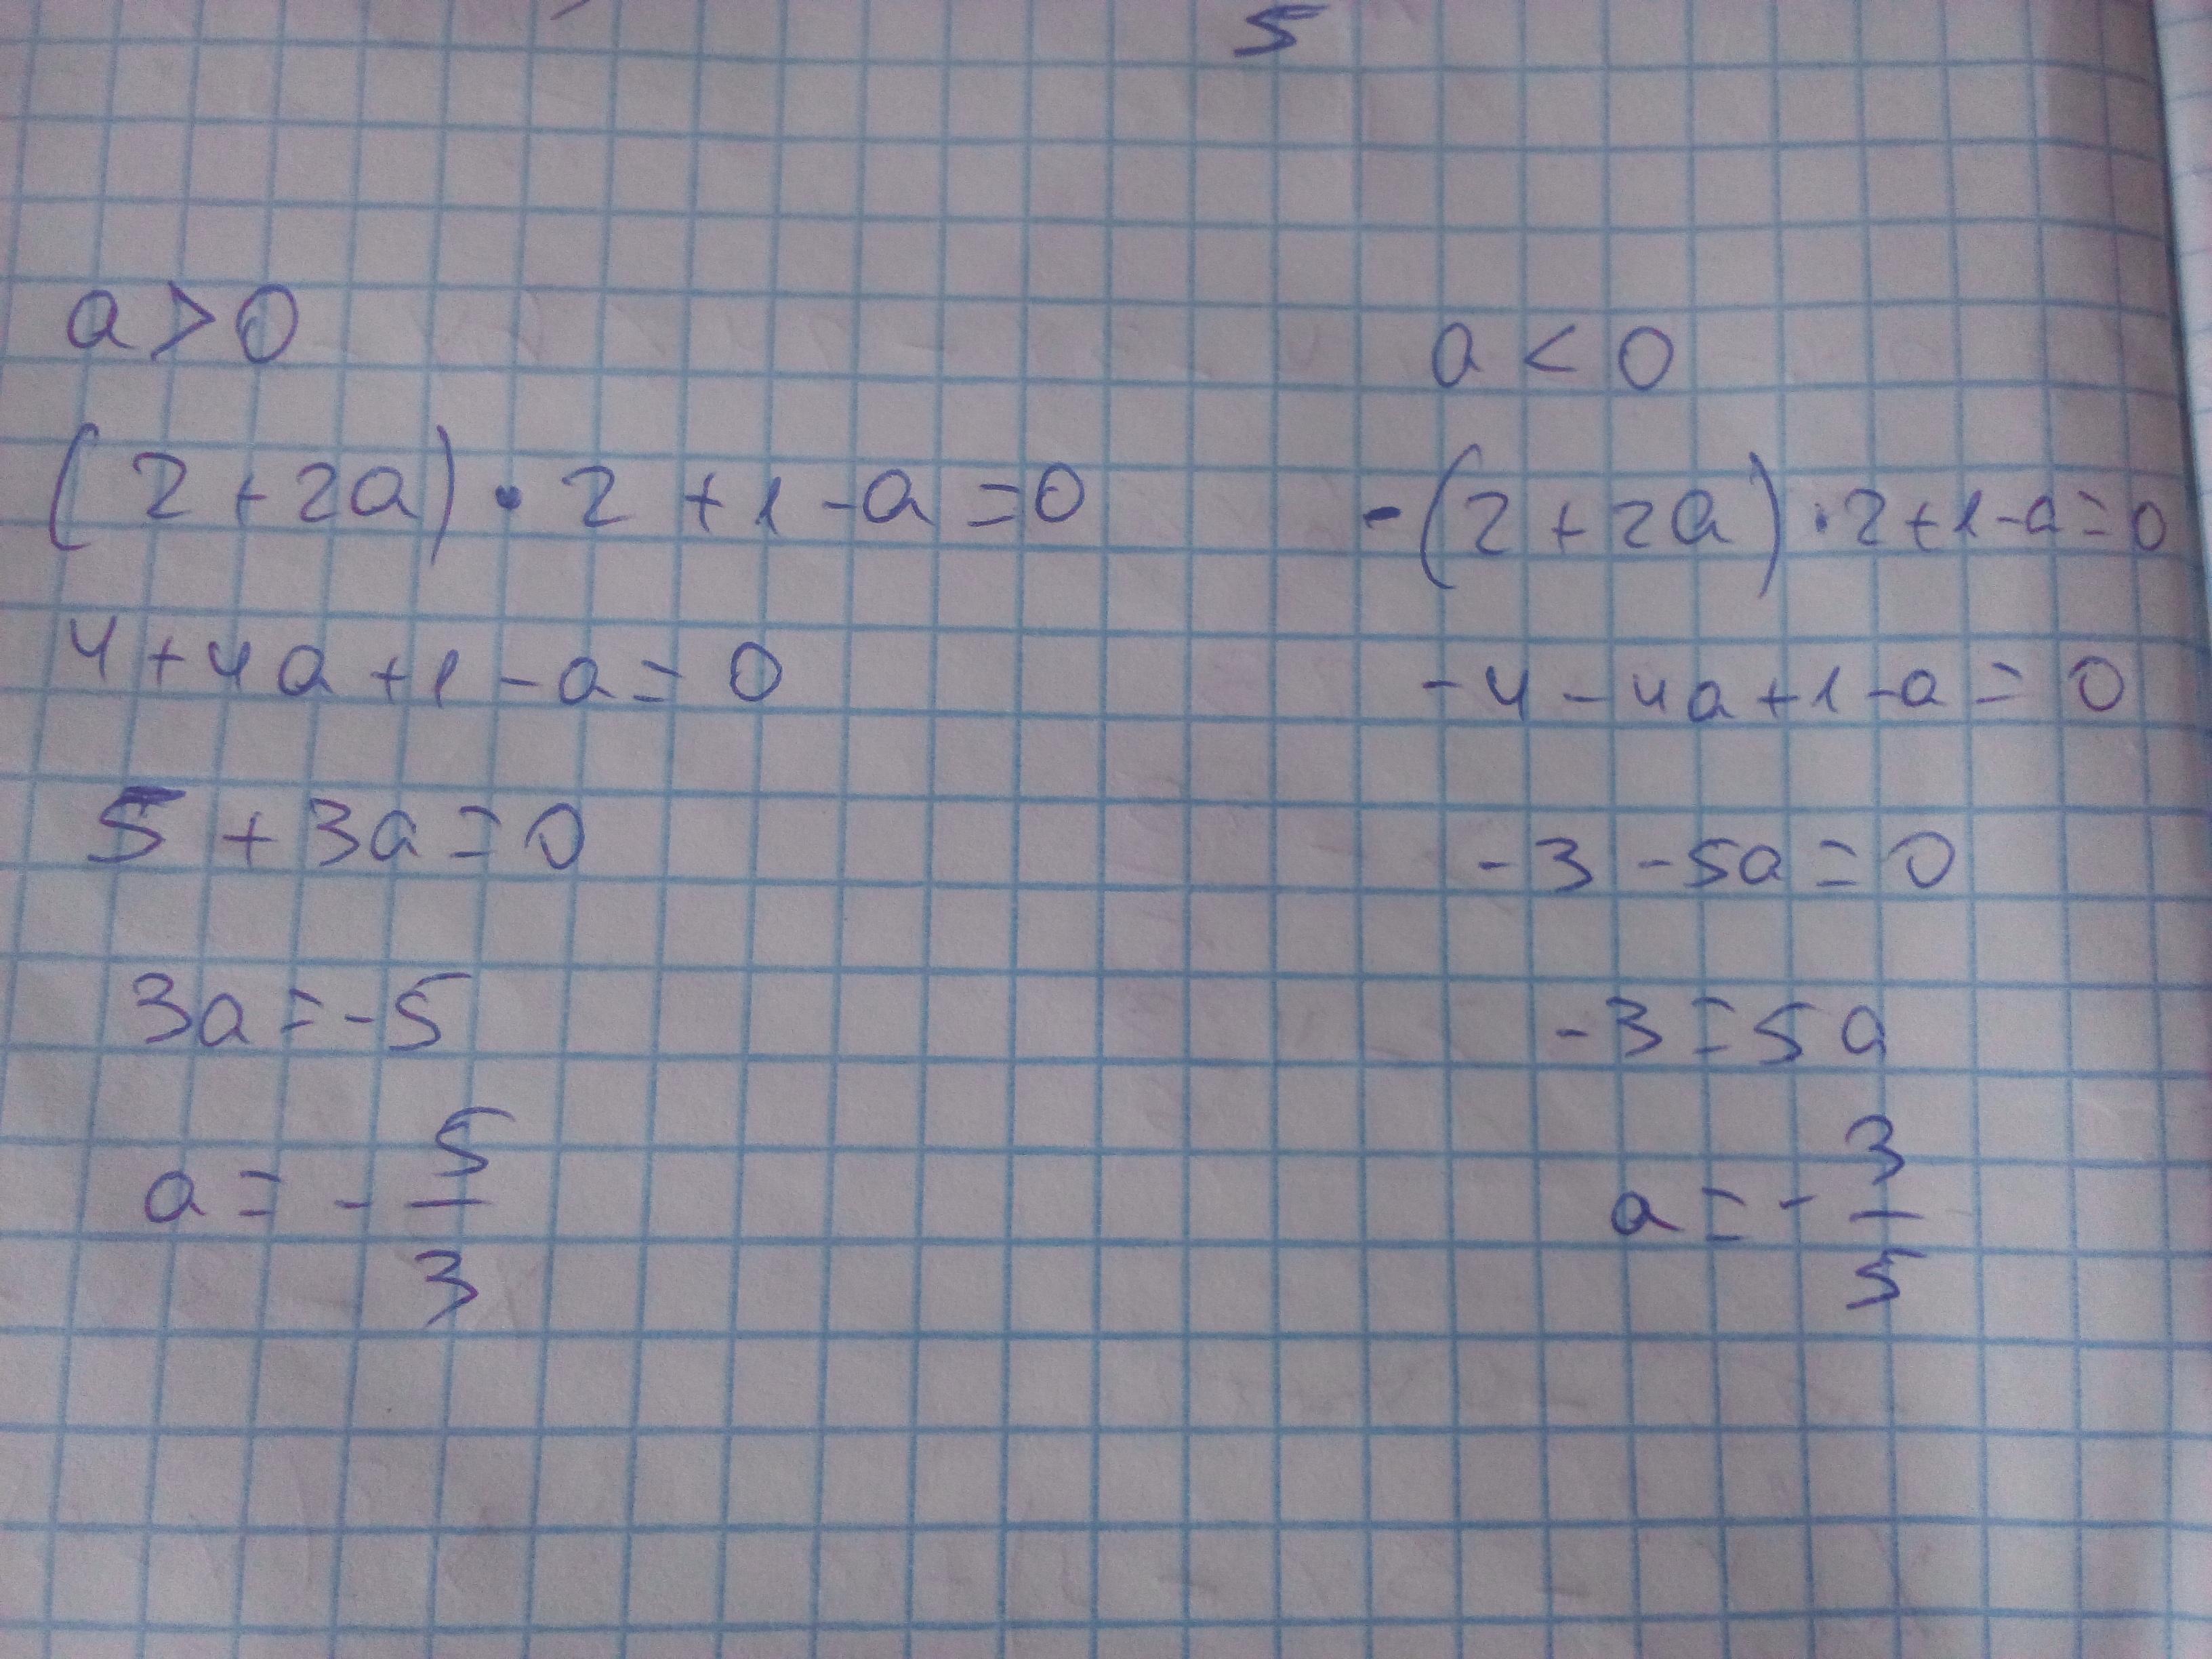 5
a > 0
(2 + 2a) · 2 + 1 - a = 0
4 + 4a + 1 - a = 0
5 + 3a = 0
3a = -5
a = - 5/3
a < 0
-(2 + 2a) · 2 + 1 - a = 0
-4 - 4a + 1 - a = 0
-3 - 5a = 0
-3 = 5a
a = - 3/5